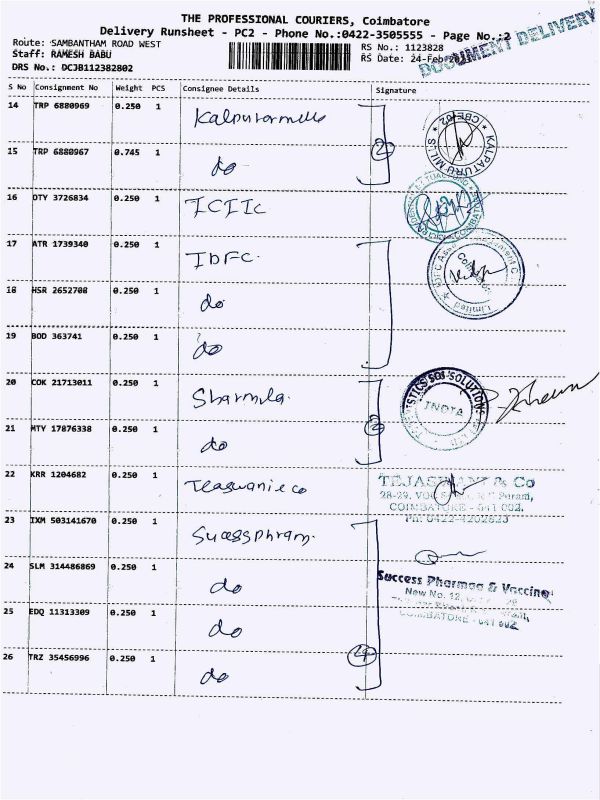 THE PROFESSIONAL COURIERS, Coimbatore
Delivery Runsheet - PC2 - Phone No.:0422-3505555 - Page No.:2
DOCUMENT DELIVERY
Route: SAMBANTHAM ROAD WEST
Staff: RAMESH BABU
DRS No.: DCJB112382802
RS No.: 1123828
RS Date: 24-Feb
S No Consignment No Weight PCS Consignee Details Signature
14 TRP 6880969 0.250 1 Kalpurarmills
15 TRP 6880967 0.745 1 do
2
KALPATURU MILLS * CBE-02 *
16 DTY 3726834 0.250 1 ICIIc
17 ATR 1739340 0.250 1 IDFC.
18 HSR 2652708 0.250 1 do
19 BOD 363741 0.250 1 do
20 COK 21713011 0.250 1 Sharmila.
21 MTY 17876338 0.250 1 do
2
22 KRR 1204682 0.250 1 Teaswanieco
TEJASWANI & Co
COIMBATORE - 641 002.
Ph: 0422-4202823
23 IXM 503141670 0.250 1 Sucessphram.
24 SLM 314486869 0.250 1 do
Success Pharmaa & Vaccine
New No. 12,
COIMBATORE - 641 002
25 EDQ 11313309 0.250 1 do
26 TRZ 35456996 0.250 1 do
4